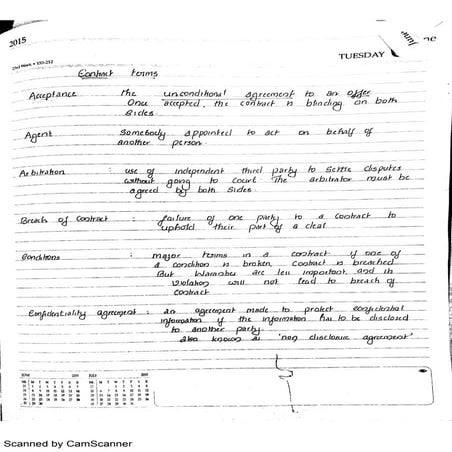 2015
TUESDAY
Contract terms
Acceptance the unconditional agreement to an offer
Once accepted, the contract is blinding on both
sides.
Agent Somebody appointed to act on behalf of
another person.
Arbitration : use of independent third party to settle disputes
without going to court. The arbitrator must be
agreed by both sides.
Breach of contract : failure of one party to a contract to
uphold their part of a deal
Conditions : major terms in a contract if one of
a condition is broken, contract is breached
But Warranties are less important and its
violation will not lead to breach of
contract
Confidentiality agreement : an agreement made to protect confidential
information if the information has to be disclosed
to another party.
also known as 'non disclosure agreement'
Scanned by CamScanner